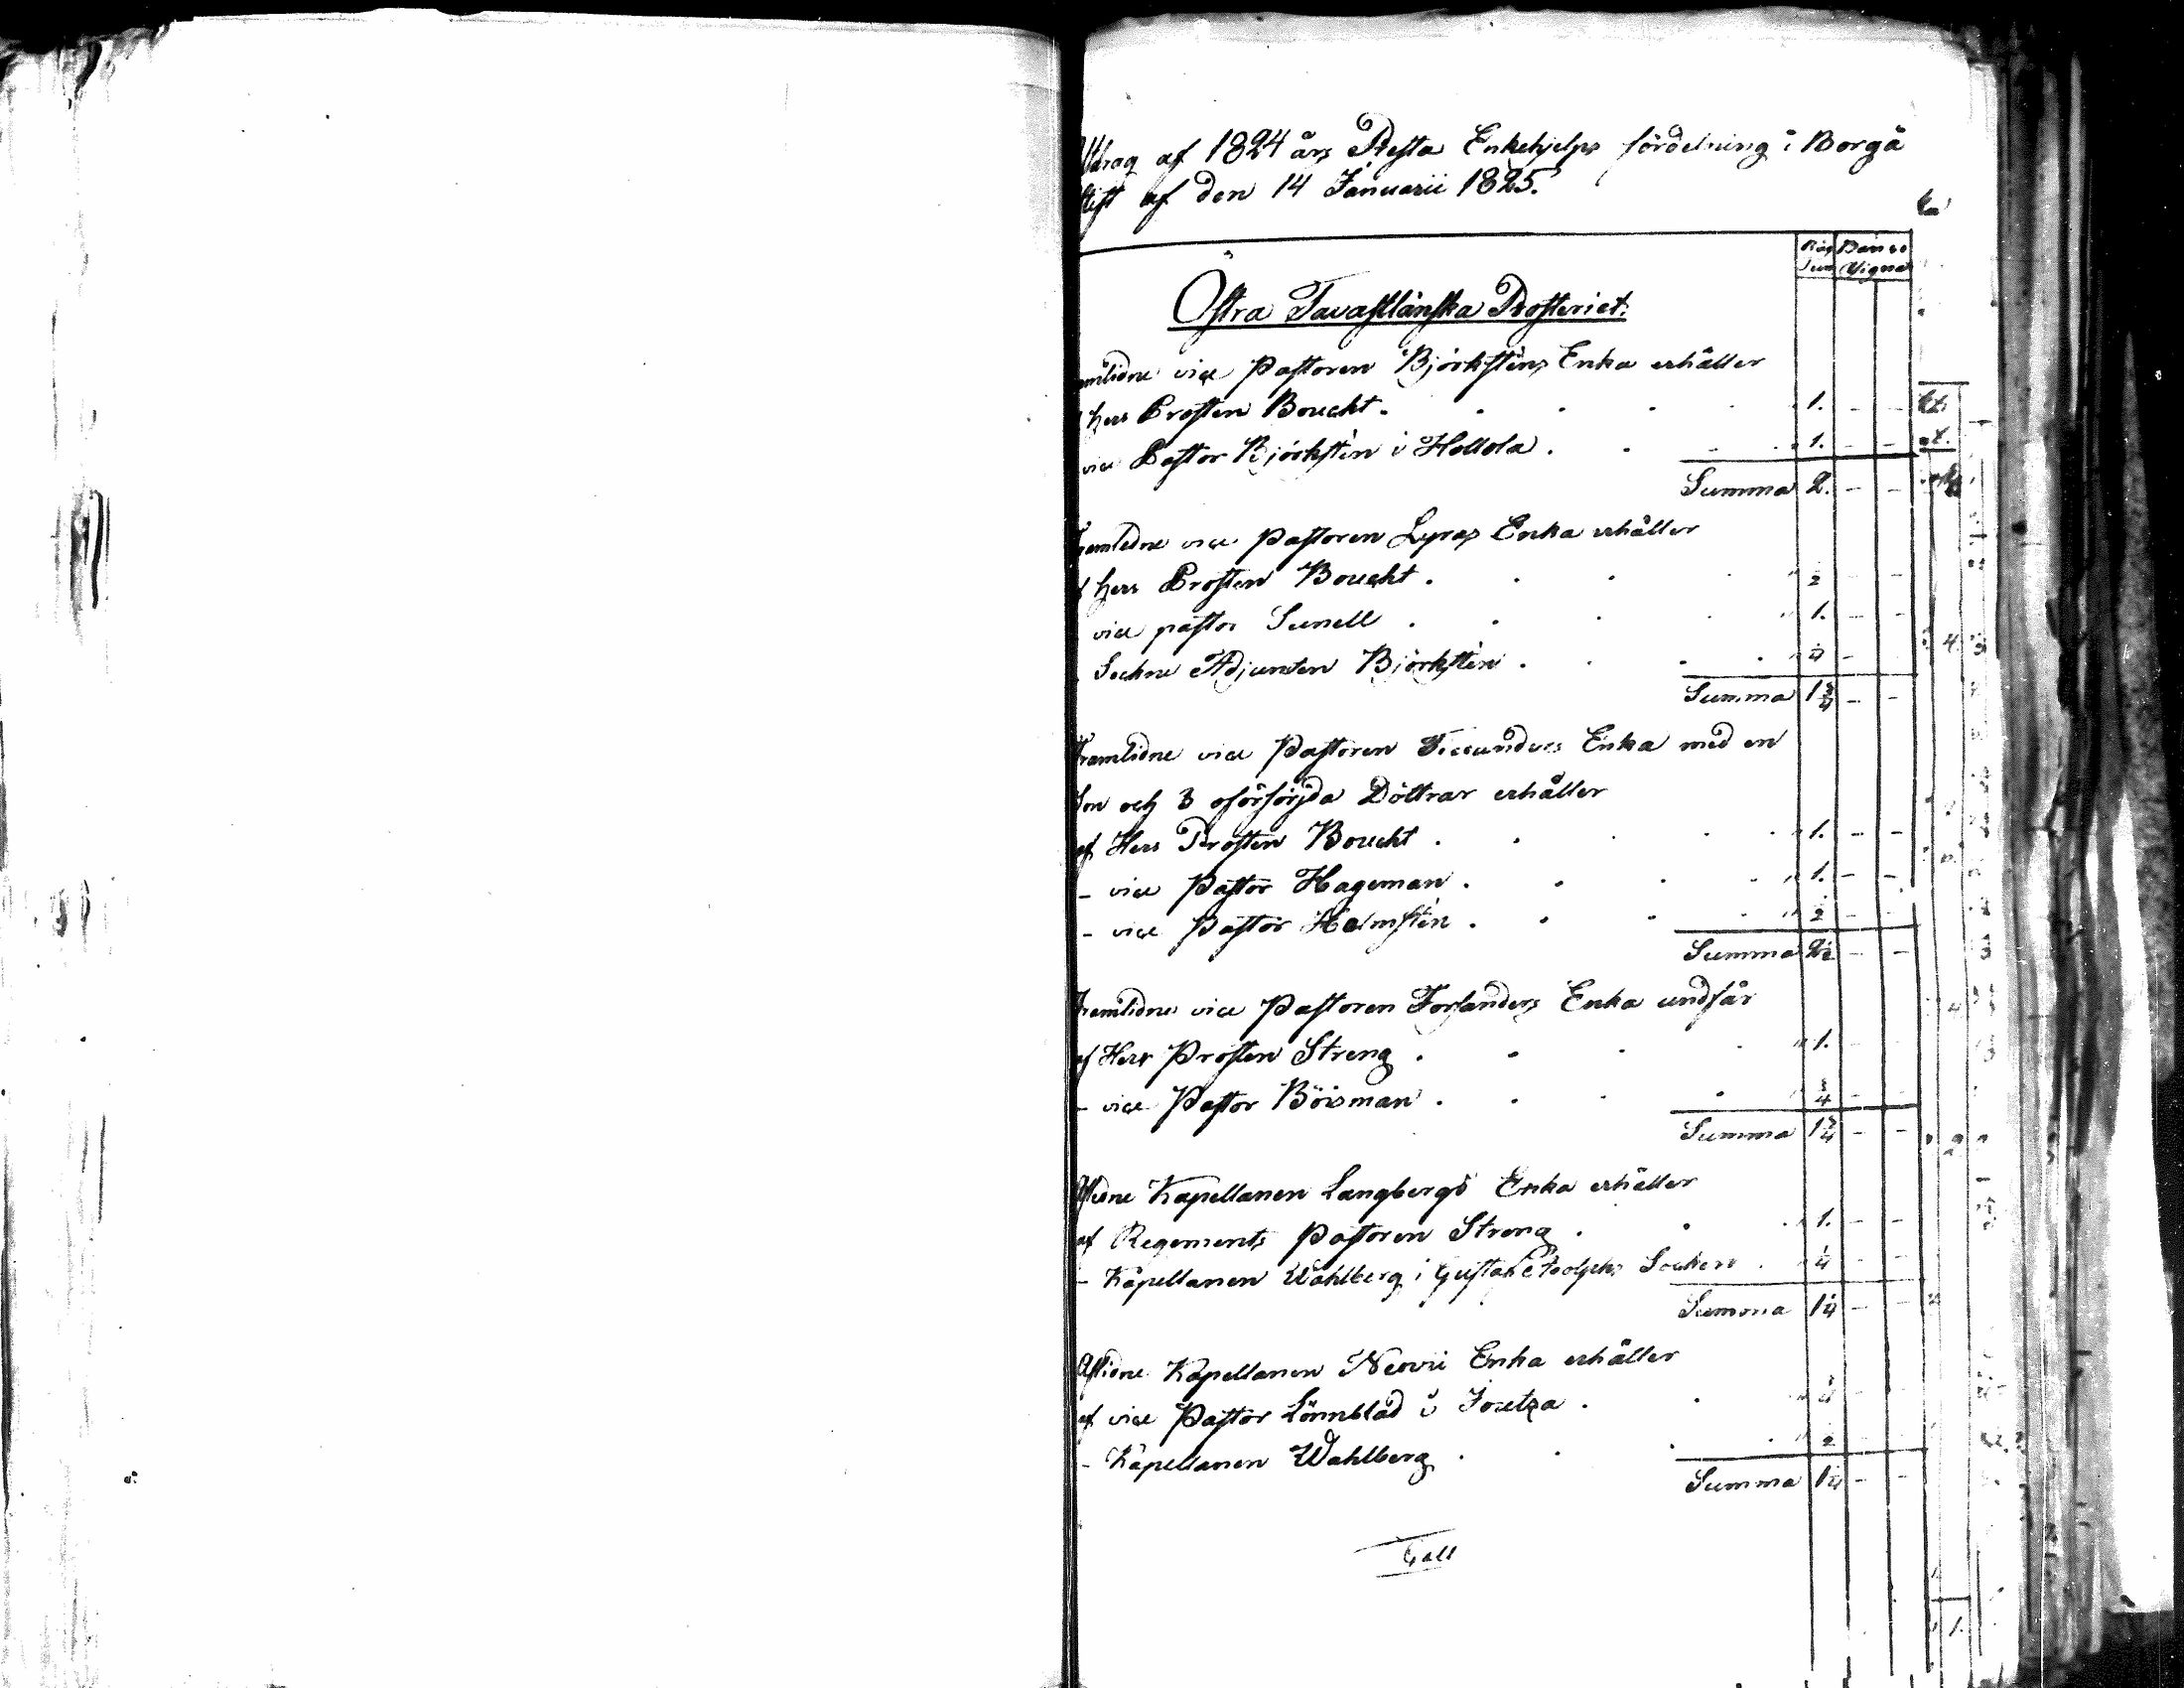 Utdrag af 1824 års Presta Enkehjelps fördelning i Borgå
Stift af den 14 Januarii 1825.
Råg Banco
Tun Signa
Östra Tavastlänska Prosteriet.
Framlidne vice Pastoren Björksténs Enka erhåller
af Herr Prosten Boucht . . . . 1. - -
vice Pastor Björkstén i Hollola . . . . 1. - -
Summa 2. - -
Framledne vice Pastoren Lyras Enka erhåller
af Herr Prosten Boucht . . . . " ½ - -
vice pastor Sunell . . . . " 1. - -
Sockne Adjuncten Björkstén . . . . " ¼ -
Summa 1¾ - -
Framlidne vice Pastoren Enka med en
Son och 3 oförsörjda Döttrar erhåller
af Herr Prosten Boucht . . . . " 1. - -
- vice Pastor Hageman . . . . " 1. - -
- vice Pastor Holmstén . . . . " ½ - -
Summa 2½ - -
Framlidne vice Pastoren Forsanders Enka undfår
af Herr Prosten Streng . . . . " 1. - -
- vice Pastor Böisman . . . . " ¾ - -
Summa 1¾ - -
Aflidne Kapellanen Langbergs Enka erhåller
af Regements Pastoren Streng . . . " 1. - -
- Kapellanen Wahlberg i Gustaf Adolphs Socken . " ¼ - -
Summa 1¼ - -
Aflidne Kapellanen Neovii Enka erhåller
af vice Pastor Lönnblad i Joutza . . . " ¾ - -
- Kapellanen Wahlberg . . . . " ½ - -
Summa 1¼ - -